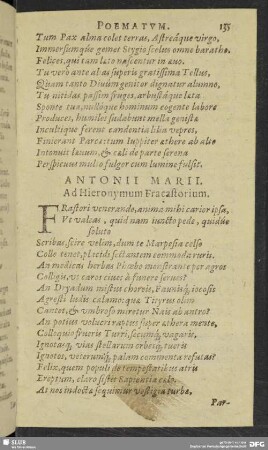 POEMATVM. 155
Tum Pax alma colet terras, Astreáque virgo,
Immersumque gemet Stygio scelus omne barathro.
Felices, qui tum lato nascentur in auo.
Tu verò ante alas superis gratissima Tellus,
Quam tanto Divûm genitor dignatur alumno,
Tu nitidas passim fruges, arbustáque lata
Sponte tua, nullóque hominum cogente labore
Produces, humiles sudabunt mella genista
Incultique ferent candentia lilia vepres.
Finierant Parca: tum Iuppiter athere ab alto
Intonuit latum, & cali de parte serena
Perspicuus multo fulgor cum lumine fulsit.
ANTONII MARII.
Ad Hieronymum Fracastorium.
FRastori venerande, anima mihi carior ipsa,
Vt valeas, quid nam iuncto pede, quidue
soluto
Scribas, scire velim, dum te Marpesia celso
Colle tenet, placidis foctantem commoda ruris.
An medicas herbas Phœbo monstrante per agros
Colligis, vt caros ciues à funere serues?
An Dryadum mistus choreis, Faunisq, iocosis
Agresti ludis calamo: que Tityrus olim
Cantat, & umbroso miretur Nais ab antro?
An potius volucri raptus super athera mente,
Colloquio frueris Turri, secumq, vagaris,
Ignotasq, vias stellarum orbesq, tueris
Ignotos, veterumq, palam commenta refutas?
Felix, quem populi de tempestatibus atris
Ereptum, claro sistit Sapientia celo.
At nos indocta sequimur vestigia turba,
Par-